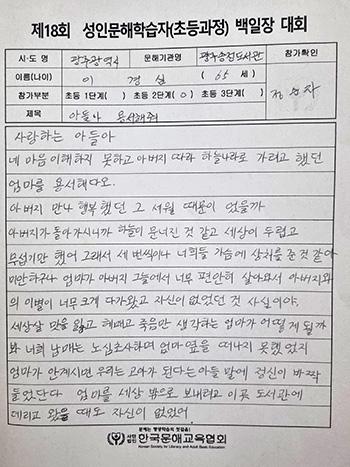 제18회 성인문해학습자(초등과정) 백일장 대회
시·도 명 광주광역시 문해기관명 광주송정도서관 참가확인
이름(나이) 이 경 실 ( 65 세 )
참가부분 초등 1단계( ) 초등 2단계( O ) 초등 3단계( )
제목 아들아 용서해줘
사랑하는 아들아
네 마음 이해하지 못하고 아버지 따라 하늘나라로 가려고 했던
엄마를 용서해다오.
아버지 만나 행복했던 그 세월 때문이 었을까
아버지가 돌아가시니까 하늘이 무너진 것 같고 세상이 두렵고
무섭기만 했어 그래서 세 번씩이나 너희들 가슴에 상처를 준 것 같아
미안하구나 엄마가 아버지 그늘에서 너무 편안히 살아와서 아버지와
의 이별이 너무 크게 다가왔고 자신이 없었던 것 사실이야.
세상살 맛을 잃고 헤매고 죽음만 생각하는 엄마가 어떻게 될까
봐 너희 남매는 노심초사하며 엄마옆을 떠나지 못했었지
엄마가 안계시면 우리는 고아가 된다는 아들 말에 정신이 바짝
들었단다 엄마를 세상 밖으로 보내려고 이곳 도서관에
데리고 왔을 때도 자신이 없었어
문해는 평생학습의 첫걸음!
사단법인 한국문해교육협회
Korean Society for Literacy and Adult Basic Education